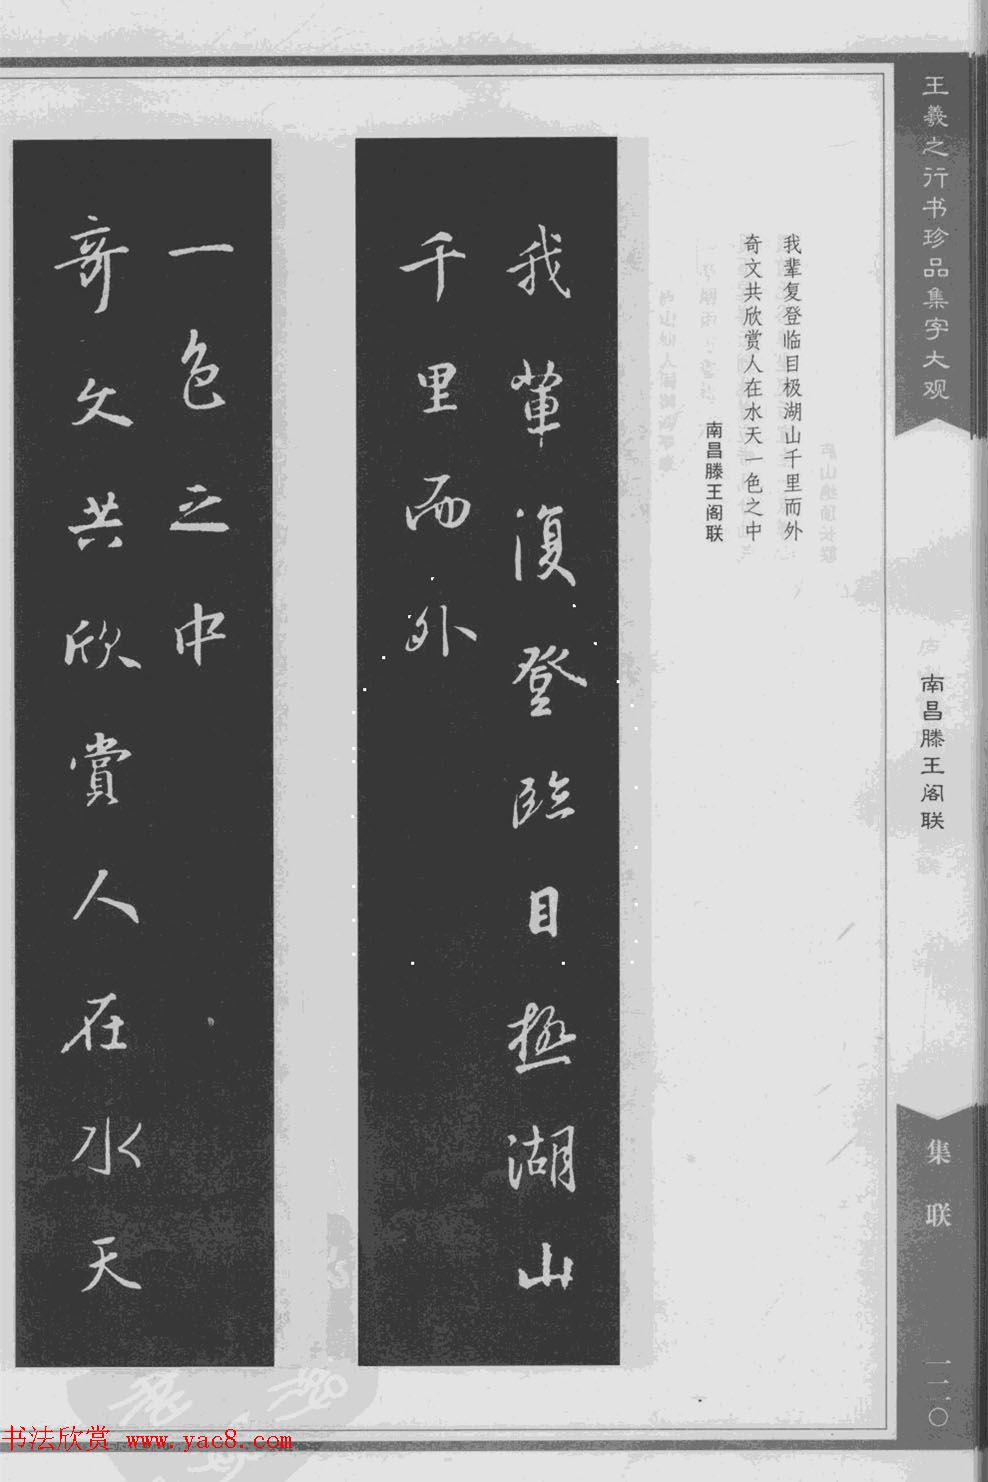 王羲之行书珍品集字大观
南昌滕王阁联
集联
一二〇
我辈复登临目极湖山千里而外
奇文共欣赏人在水天一色之中
南昌滕王阁联
我輩復登臨目極湖山
千里而外
奇文共欣賞人在水天
一色之中
书法欣赏 www.yac8.com